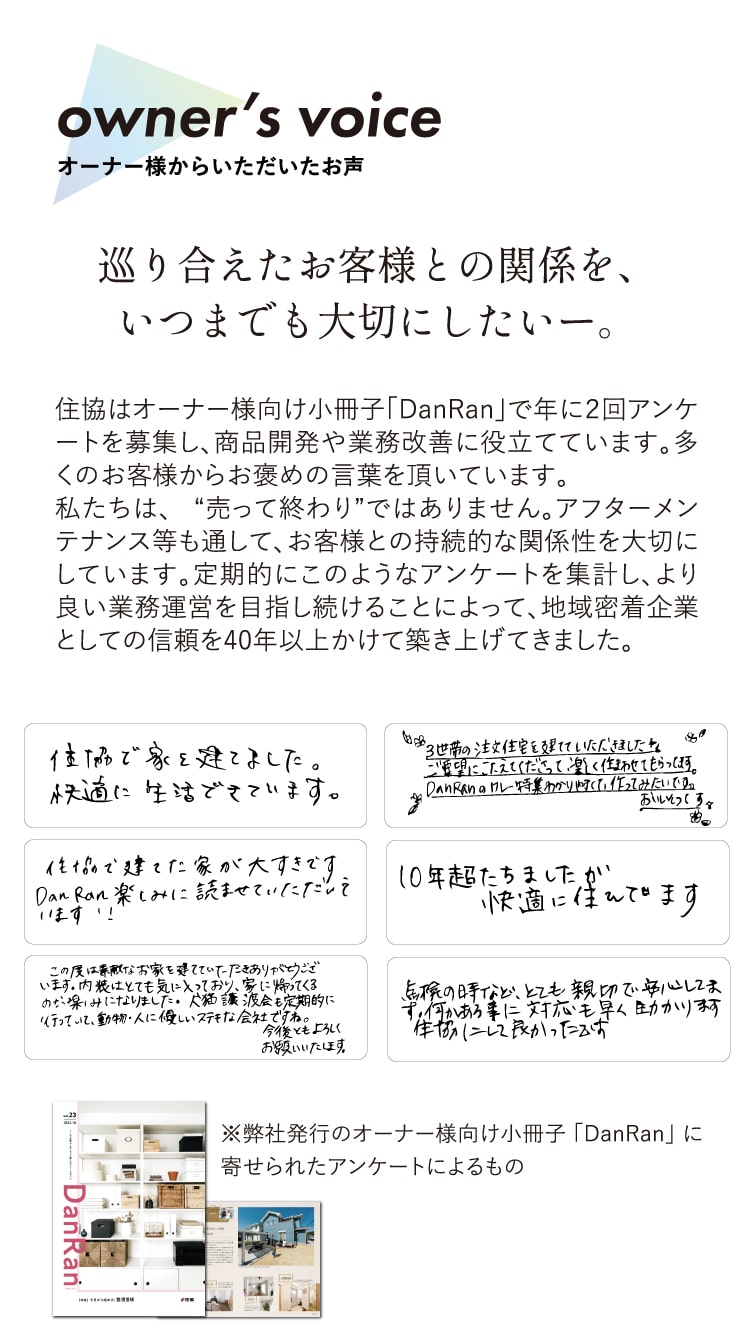 owner's voice
オーナー様からいただいたお声
巡り合えたお客様との関係を、
いつまでも大切にしたいー。
住協はオーナー様向け小冊子「DanRan」で年に2回アンケ
ートを募集し、商品開発や業務改善に役立てています。多
くのお客様からお褒めの言葉を頂いています。
私たちは、“売って終わり”ではありません。アフターメン
テナンス等も通して、お客様との持続的な関係性を大切に
しています。定期的にこのようなアンケートを集計し、より
良い業務運営を目指し続けることによって、地域密着企業
としての信頼を40年以上かけて築き上げてきました。
住協で家を建てました。
快適に生活できています。
3世帯の注文住宅を建てていただきました
ご要望にこたえてくださって、楽しく住まわせてもらってます。
DanRanのカレー特集わかりやすくて、作ってみたいです。
おいしそうです
住協で建てた家が大すきです
DanRan楽しみに読ませていただいて
います!!
10年超たちましたが
快適に住んでます
この度は素敵なお家を建てていただきありがとうござ
います。内装はとても気に入っており、家に帰ってくる
のが楽しみになりました。犬猫譲渡会も定期的に
行っていて、動物・人に優しいステキな会社ですね。
今後ともよろしく
お願いいたします。
点検の時など、とても親切で安心してま
す。何かある事に対応も早く助かります
住協にして良かったです
vol.23
DanRan
整理収納
住協
※弊社発行のオーナー様向け小冊子「DanRan」に
寄せられたアンケートによるもの